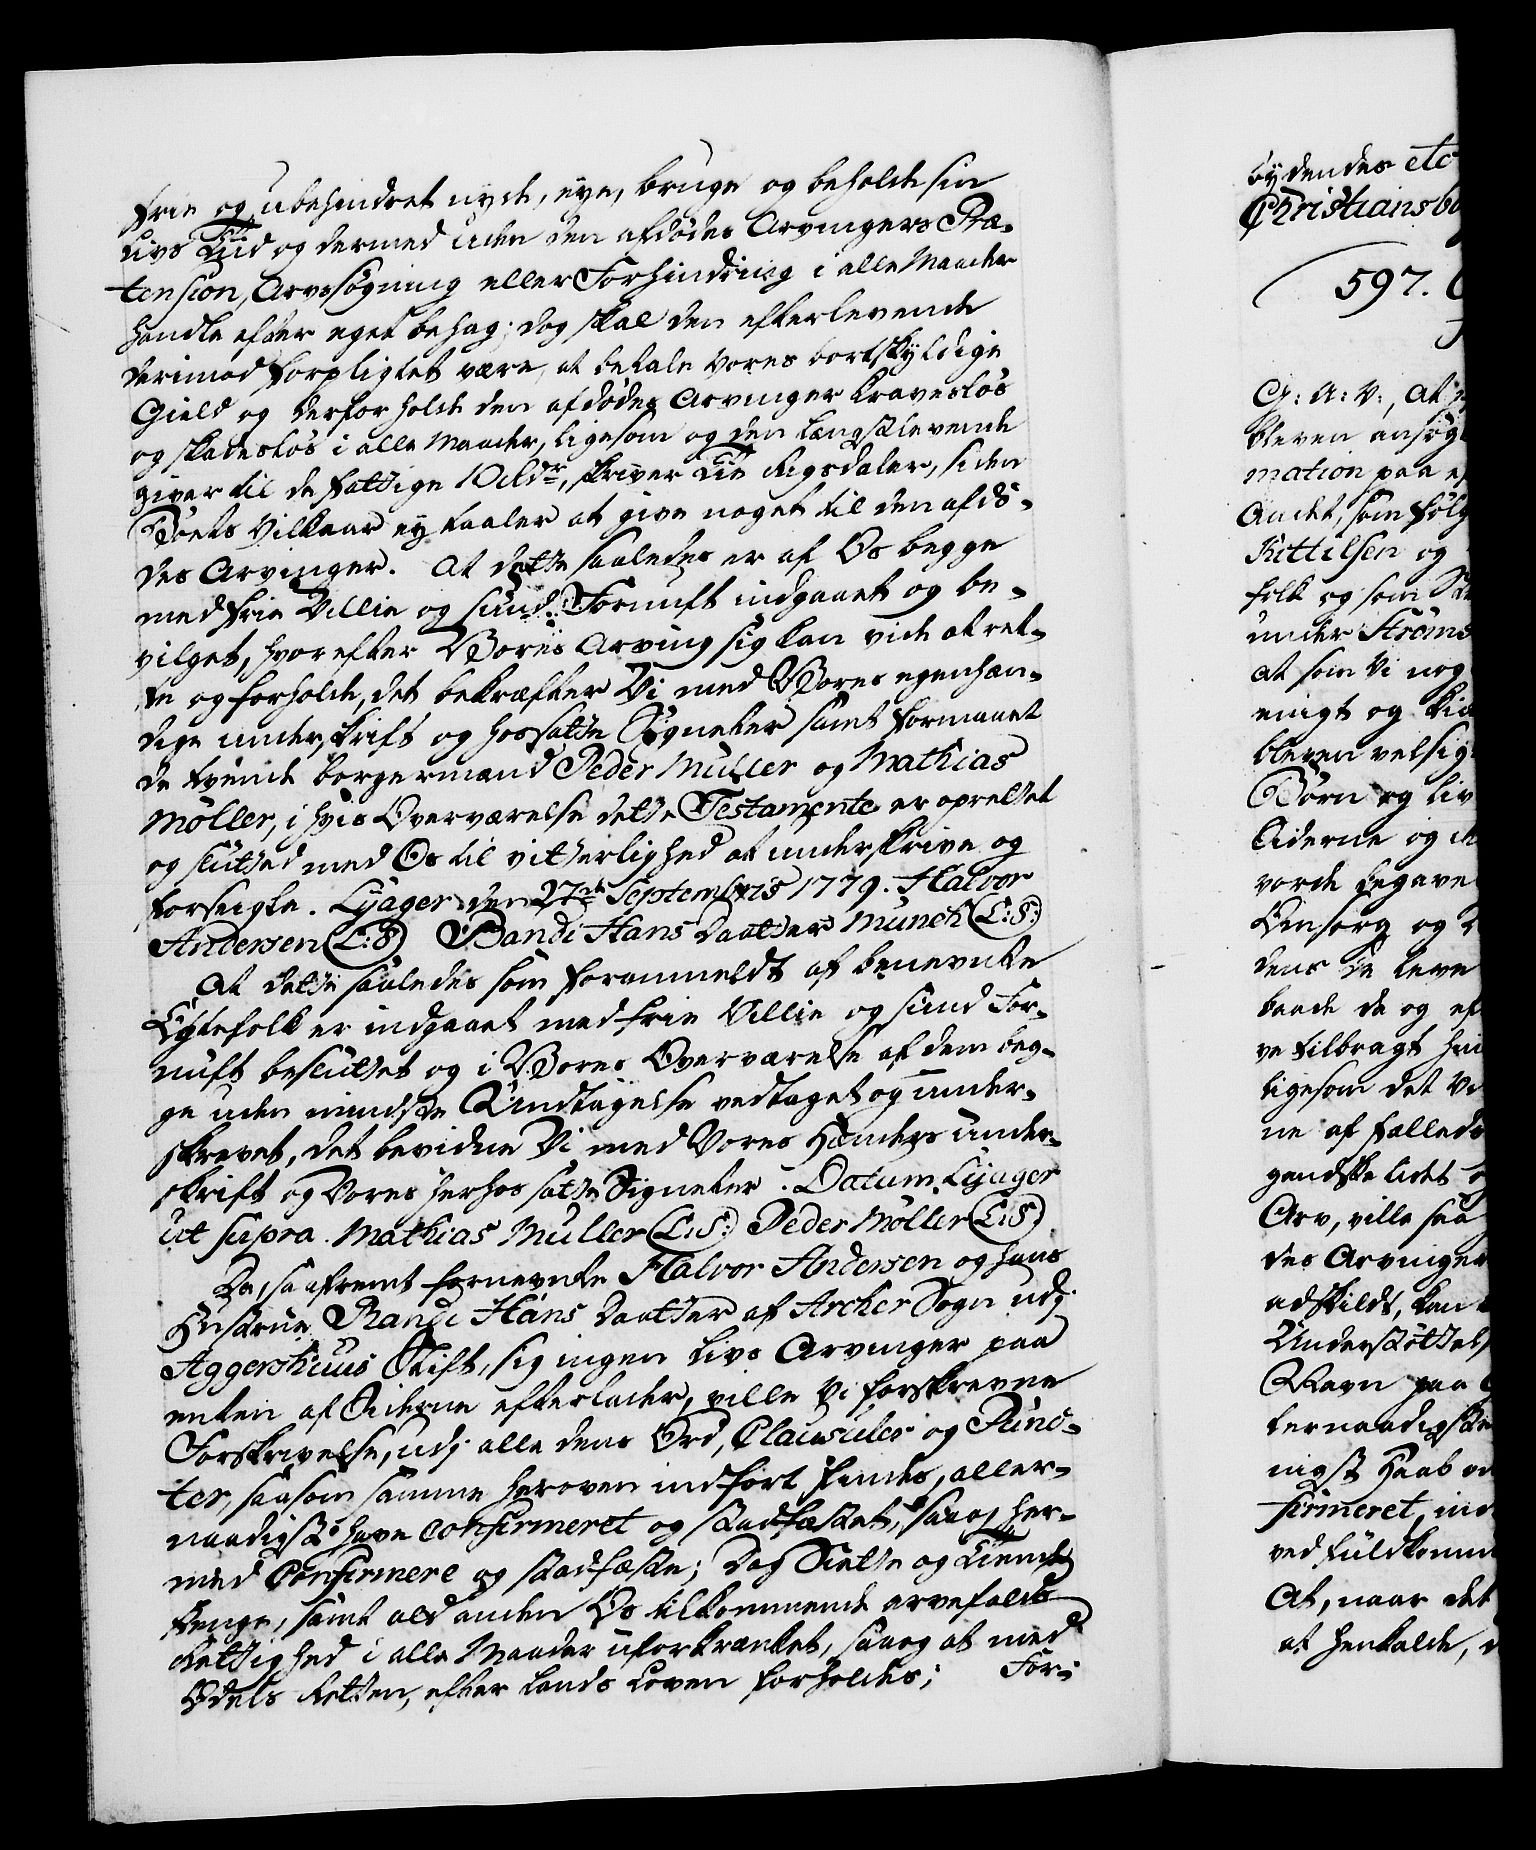 frie og ubehindret nyde, eÿe, bruge og beholde sin
Livs Tiid og dermed uden den afdödes Arvingers Præ-
tension, Arvesögning eller Forhindring i alle Maader
handle efter eget behag; dog skal den efterlevende
derimod forpligtet være, at betale vores bortskÿldige
Gield og derfor holde den afdödes Arvinger kravesløs
og skadesløs i alle Maader, ligesom og den længstlevende
giver til de fattige 10 rdr, skriver Tie Rigsdaler, siden
Boets Vilkaar eÿ taaler at give noget til den afdö-
des Arvinger. At dette saaledes er af Os begge
med frie Villie og sund Fornuft indgaaet og be-
vilget, hvorefter Vores Arving sig kan vide at ret-
te og forholde, det bekræfter Vi med Vores egenhæn-
dige underskrift og hossatte Signeter samt formaaet
de tvende borgermænd Peder Muller og Mathias
Möller, i hvis Overværelse dette Testamente er oprettet
og slutted med Os til vitterlighed at underskrive og
forseigle. Lÿager den 27de Septembris 1779. Halvor
Andersen (L:S) Randi Hans Daatter Munch (L:S:)
At dette saaledes som foranmeldt af benevnte
Egtefolk er indgaaet med frie Villie og sund For-
nuft besluttet og i Vores Overværelse af dem beg-
ge uden mindste Undtagelse vedtaget og under-
skrevet, det bevidne Vi med Vores Hænders under-
skrift og Vores herhos satte Signeter. Datum Lÿager
ut supra. Mathias Muller (L:S:) Peder Möller (L:S)
Da, saafremt fornevnte Halvor Andersen og hans
Hustrue Randi Hans Daatter af Archer Sogn udj
Aggershuus Stift, sig ingen Livs Arvinger paa
enten af Siderne efterlader, ville Vi forskrevne
Forskrivelse, udj alle dens Ord, Clausuler og Punc-
ter, saasom samme heroven indfört findes, aller-
naadigst have confirmeret og stadfæstet, saa og her-
med Confirmere og stadfæste; Dog Siette og Tiende
Penge, samt ald anden Os tilkommende arvefalds
Rettighed i alle Maader uforkrænket, saa og at med
Odels Retten, efter Lands Loven forholdes; For-
bÿdendes etc
Christiansbo
597.
G: A: V:, At
bleven ansög
mation paa e
Andet, som fölg
Kittilsen og
folk og som
under Ströms
at som Vi nog
enigt og
bleven velsig
Börn og Liv
Siderne og
vorde begave
Omsorg og
dens de leve
baade de og ef
ve tilbragt
ligesom det
ne af fælleds
gandske lidet
Arv, ville saa
des Arvinger
adskilds, kan
Understöttels
Navn paa
lernaadigste
nigst Haab
firmeret, ind
ved fuldkomm
At, naar det
at henkalde,